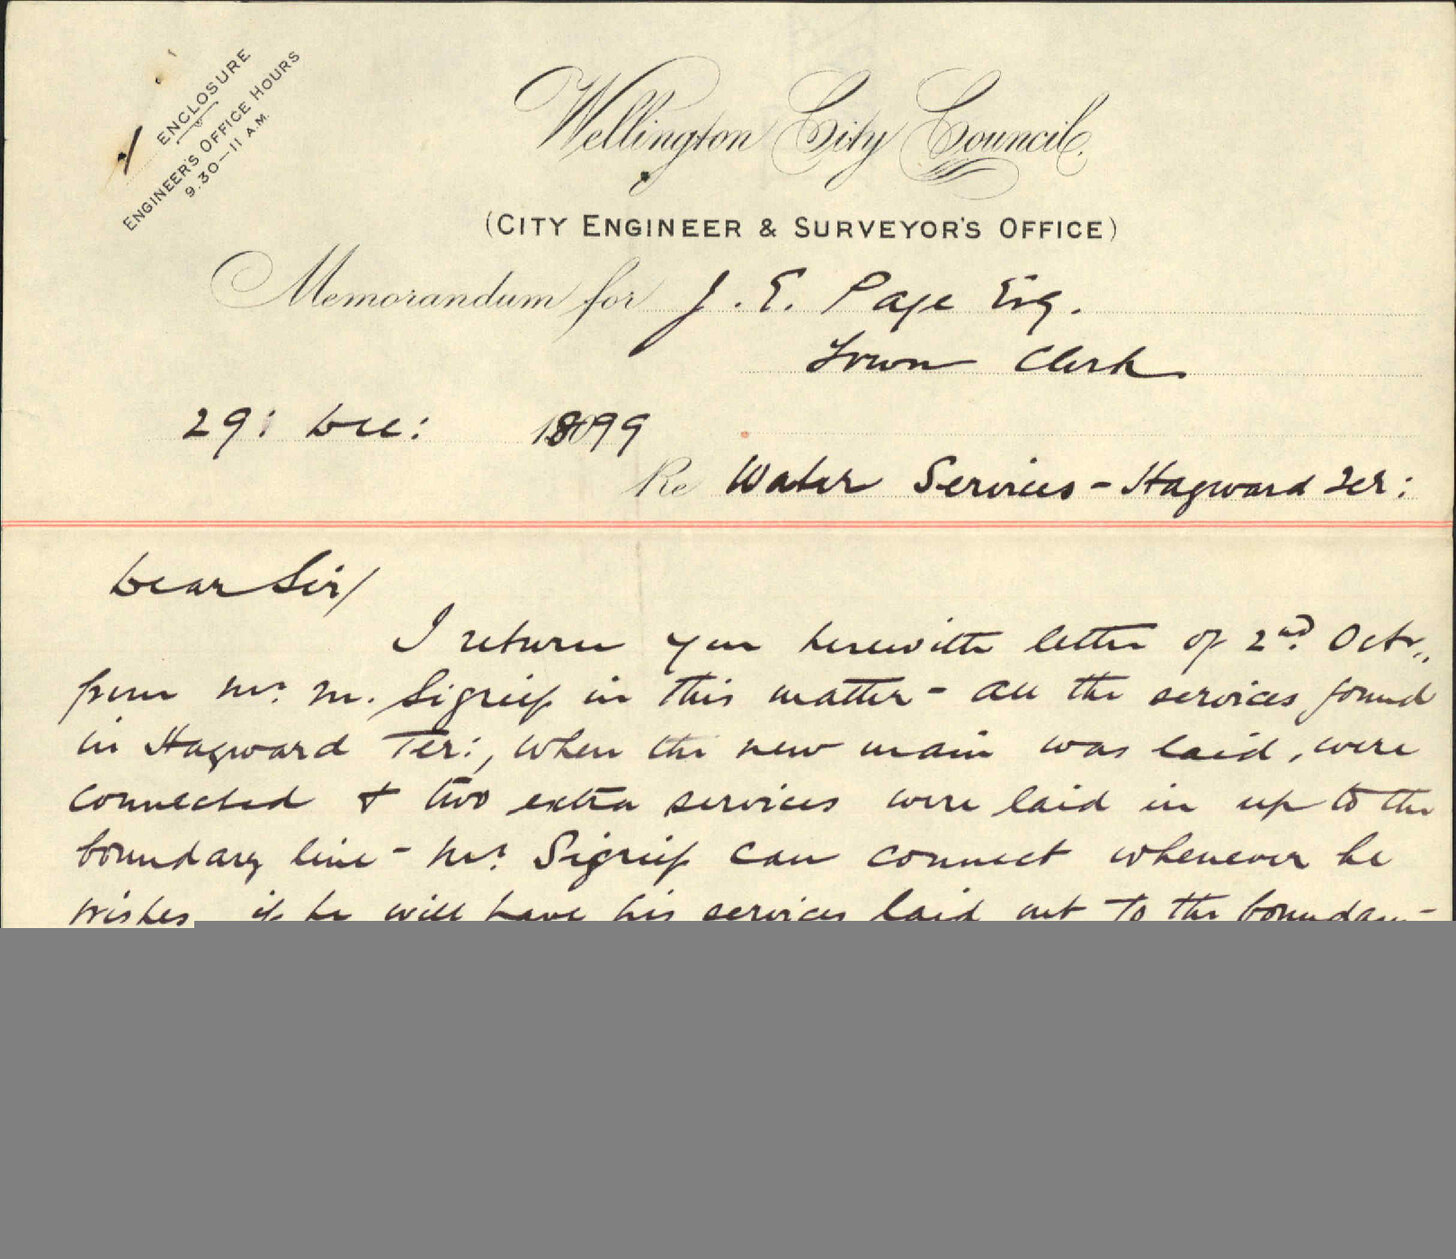 ENCLOSURE
ENGINEER'S OFFICE HOURS
9.30–11 A.M.
Wellington City Council.
(CITY ENGINEER & SURVEYOR'S OFFICE)
Memorandum for J. E. Page Esq.
Town Clerk
29: Dec: 1899
Re Water Services - Hayward Ter:
Dear Sir/
I return you herewith letter of 2nd. Octr.,
from Mr. M. Sigrief in this matter - All the services found
in Hayward Ter:, when the new main was laid, were
connected & two extra services were laid in up to the
boundary line - Mr. Sigrief can connect whenever he
wishes if he will have his services laid out to the boundary